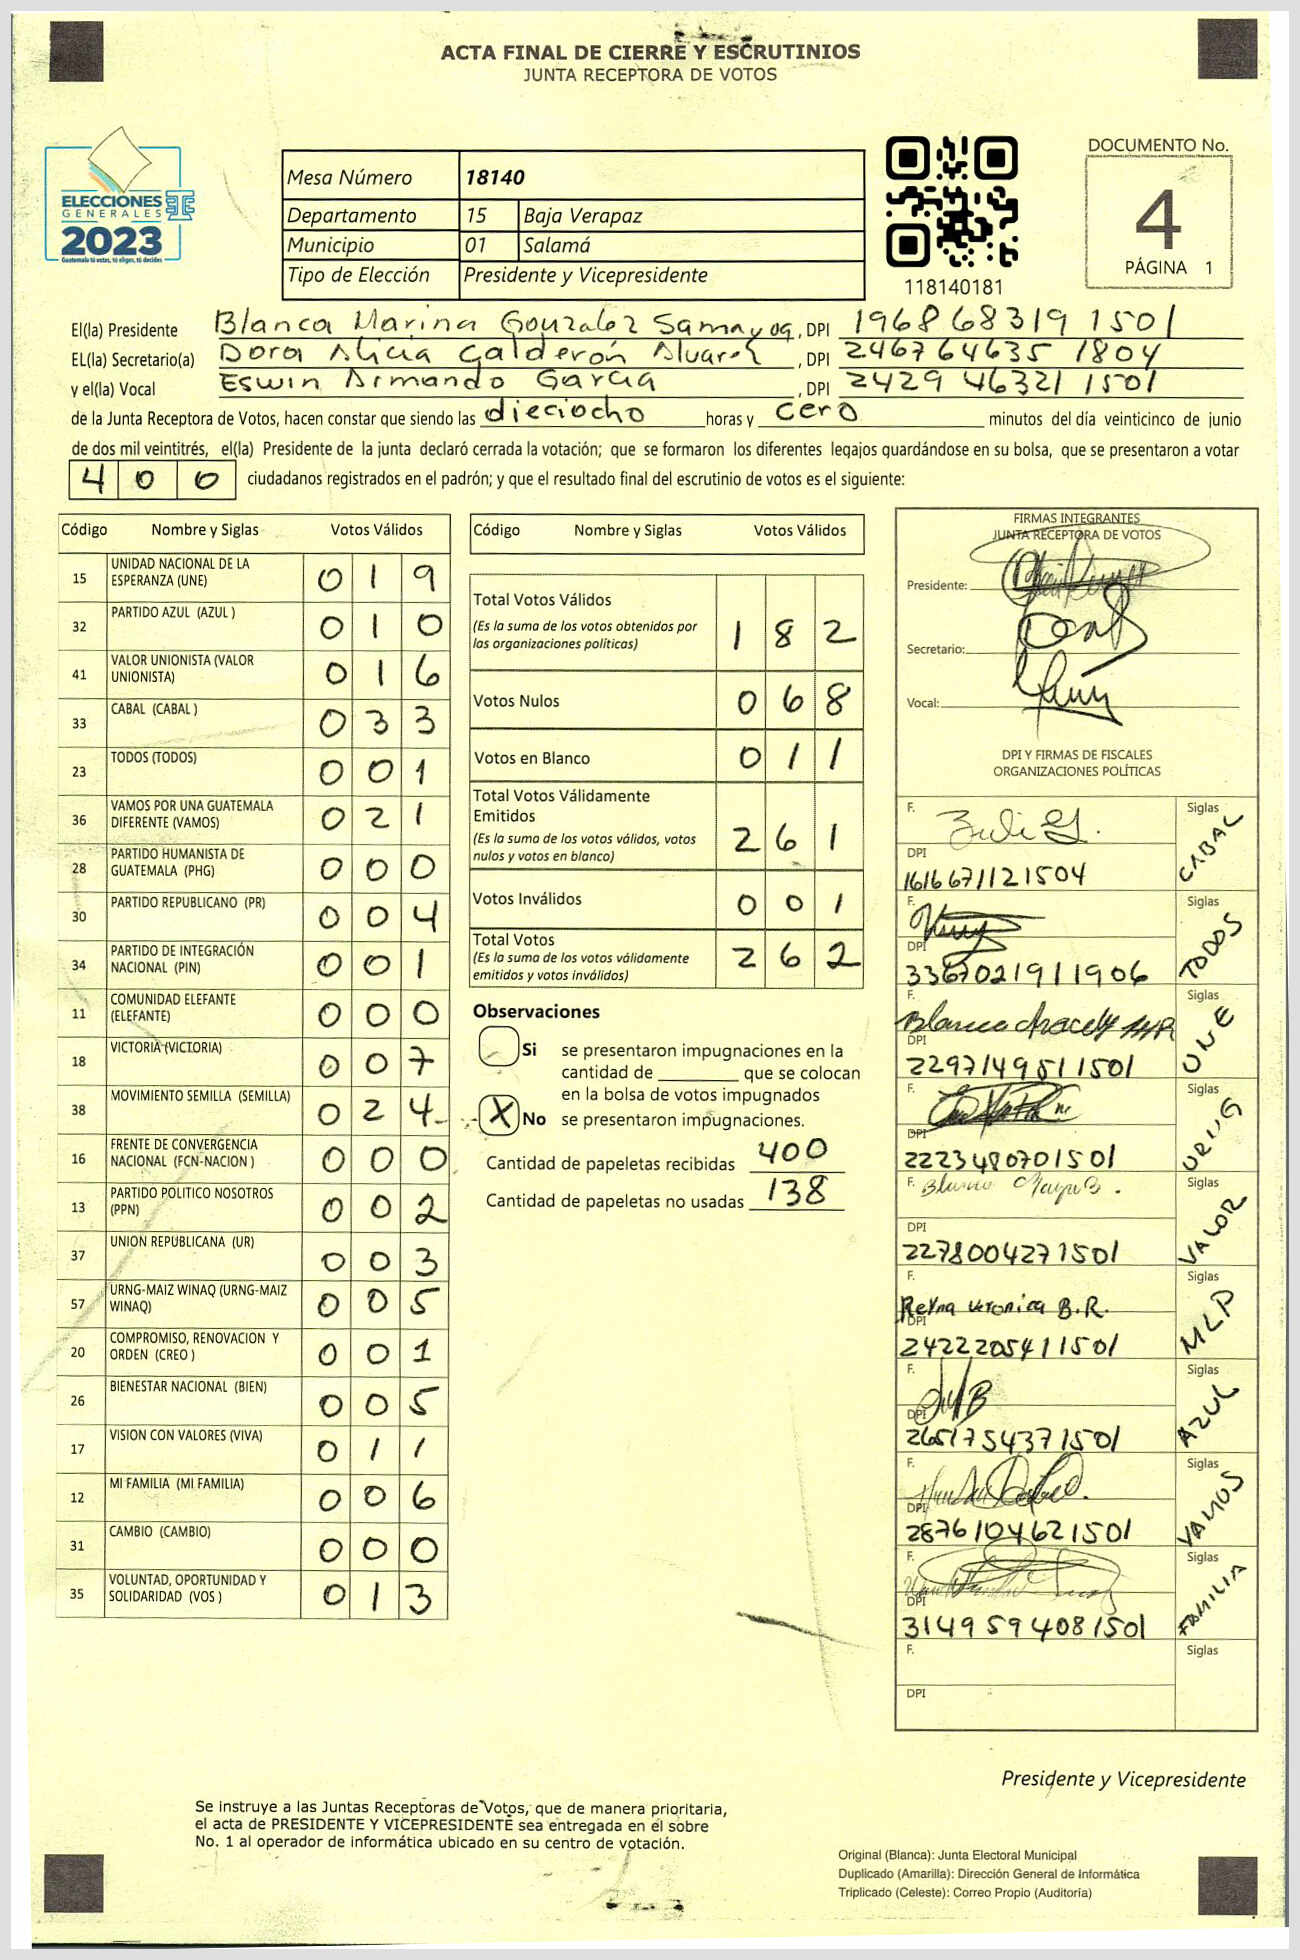 ACTA FINAL DE CIERRE Y ESCRUTINIOS
JUNTA RECEPTORA DE VOTOS
ELECCIONES
GENERALES
2023
Guatemala tú votas, tú eliges, tú decides
Mesa Número 18140
Departamento 15 Baja Verapaz
Municipio 01 Salamá
Tipo de Elección Presidente y Vicepresidente
118140181
DOCUMENTO No.
4
PÁGINA 1
El(la) Presidente Blanca Marina Gonzalez Samayoa, DPI 196868319 1501
EL(la) Secretario(a) Dora Alicia Calderón Alvarez, DPI 246764635 1804
y el(la) Vocal Eswin Armando Garcia, DPI 2429 46321 1501
de la Junta Receptora de Votos, hacen constar que siendo las dieciocho horas y cero minutos del día veinticinco de junio
de dos mil veintitrés, el(la) Presidente de la junta declaró cerrada la votación; que se formaron los diferentes legajos guardándose en su bolsa, que se presentaron a votar
4 0 0 ciudadanos registrados en el padrón; y que el resultado final del escrutinio de votos es el siguiente:
Código Nombre y Siglas Votos Válidos
15 UNIDAD NACIONAL DE LA ESPERANZA (UNE) 0 1 9
32 PARTIDO AZUL (AZUL ) 0 1 0
41 VALOR UNIONISTA (VALOR UNIONISTA) 0 1 6
33 CABAL (CABAL ) 0 3 3
23 TODOS (TODOS) 0 0 1
36 VAMOS POR UNA GUATEMALA DIFERENTE (VAMOS) 0 2 1
28 PARTIDO HUMANISTA DE GUATEMALA (PHG) 0 0 0
30 PARTIDO REPUBLICANO (PR) 0 0 4
34 PARTIDO DE INTEGRACIÓN NACIONAL (PIN) 0 0 1
11 COMUNIDAD ELEFANTE (ELEFANTE) 0 0 0
18 VICTORIA (VICTORIA) 0 0 7
38 MOVIMIENTO SEMILLA (SEMILLA) 0 2 4
16 FRENTE DE CONVERGENCIA NACIONAL (FCN-NACION ) 0 0 0
13 PARTIDO POLITICO NOSOTROS (PPN) 0 0 2
37 UNION REPUBLICANA (UR) 0 0 3
57 URNG-MAIZ WINAQ (URNG-MAIZ WINAQ) 0 0 5
20 COMPROMISO, RENOVACION Y ORDEN (CREO ) 0 0 1
26 BIENESTAR NACIONAL (BIEN) 0 0 5
17 VISION CON VALORES (VIVA) 0 1 1
12 MI FAMILIA (MI FAMILIA) 0 0 6
31 CAMBIO (CAMBIO) 0 0 0
35 VOLUNTAD, OPORTUNIDAD Y SOLIDARIDAD (VOS ) 0 1 3
Código Nombre y Siglas Votos Válidos
Total Votos Válidos
(Es la suma de los votos obtenidos por
las organizaciones políticas) 1 8 2
Votos Nulos 0 6 8
Votos en Blanco 0 1 1
Total Votos Válidamente
Emitidos
(Es la suma de los votos válidos, votos
nulos y votos en blanco) 2 6 1
Votos Inválidos 0 0 1
Total Votos
(Es la suma de los votos válidamente
emitidos y votos inválidos) 2 6 2
Observaciones
Si se presentaron impugnaciones en la
cantidad de ________ que se colocan
en la bolsa de votos impugnados
X No se presentaron impugnaciones.
Cantidad de papeletas recibidas 400
Cantidad de papeletas no usadas 138
FIRMAS INTEGRANTES
JUNTA RECEPTORA DE VOTOS
Presidente:
Secretario:
Vocal:
DPI Y FIRMAS DE FISCALES
ORGANIZACIONES POLÍTICAS
F. Siglas CABAL
DPI
1616671121504
F. Siglas TODOS
DPI
3367021911906
F. Blanca Aracely Siglas UNE
DPI
2297149511501
F. Siglas URNG
DPI
2223480701501
F. Blanca Siglas VALOR
DPI
2278004271501
F. Siglas MLP
Reyna Veronica B.R.
DPI
2422205411501
F. Siglas AZUL
DPI
2651754371501
F. Siglas VAMOS
DPI
2876104621501
F. Siglas FAMILIA
DPI
3149594081501
F. Siglas
DPI
Presidente y Vicepresidente
Se instruye a las Juntas Receptoras de Votos, que de manera prioritaria,
el acta de PRESIDENTE Y VICEPRESIDENTE sea entregada en el sobre
No. 1 al operador de informática ubicado en su centro de votación.
Original (Blanca): Junta Electoral Municipal
Duplicado (Amarilla): Dirección General de Informática
Triplicado (Celeste): Correo Propio (Auditoría)